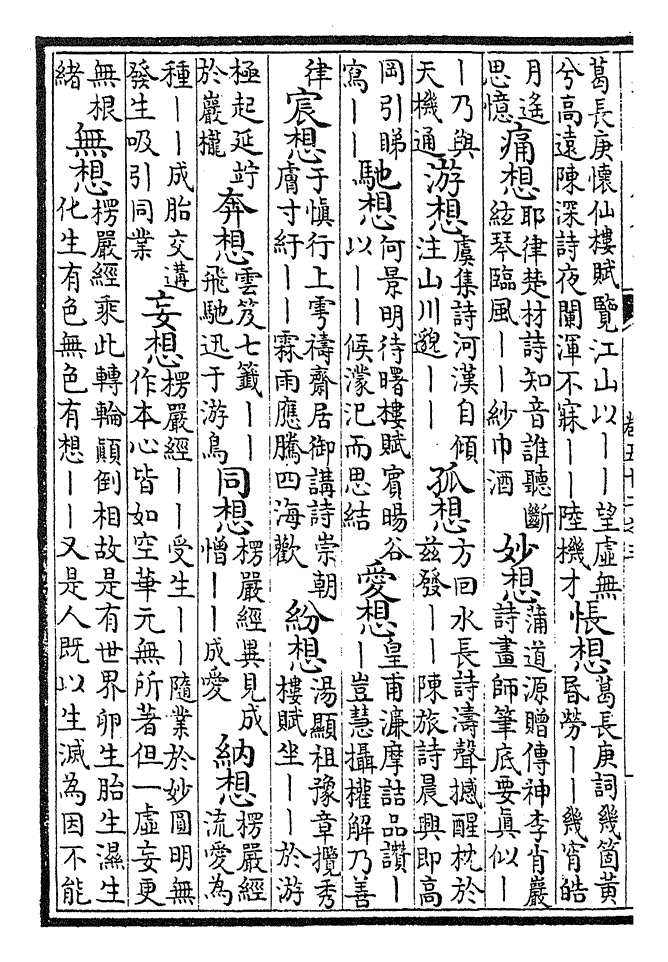 葛長庚懷仙樓賦覽江山以——望虛無
兮高遠陳深詩夜闌渾不寐——陸機才
悵想
葛長庚詞幾箇黃
昏勞——幾宵皓
月遙
思憶
痛想
耶律楚材詩知音誰聽斷
絃琴臨風——紗巾酒
妙想
蒲道源贈傳神李肖巖
詩畫師筆底要眞似—
—乃與
天機通
游想
虞集詩河漢自傾
注山川邈——
孤想
方回水長詩濤聲撼醒枕於
茲發——陳旅詩晨興即高
岡引睇
寫——
馳想
何景明待曙樓賦賓暘谷
以——候濛汜而思結
愛想
皇甫濂摩詰品讚—
—豈慧攝權解乃善
律
宸想
于愼行上雩禱齋居御講詩崇朝
膚寸紆——霖雨應騰四海歡
紛想
湯顯祖豫章攬秀
樓賦坐——於游
極起延竚
於巖櫳
奔想
雲笈七籤——
飛馳迅于游鳥
同想
楞嚴經異見成
憎——成愛
納想
楞嚴經
流愛為
種——成胎交遘
發生吸引同業
妄想
楞嚴經——受生——隨業於妙圓明無
作本心皆如空華元無所著但一虛妄更
無根
緒
無想
楞嚴經乘此轉輪顛倒相故是有世界卵生胎生濕生
化生有色無色有想——又是人既以生滅為因不能